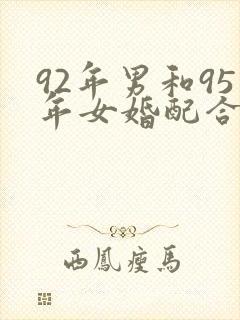 92年男和95
年女婚配合
西鳳瘦馬